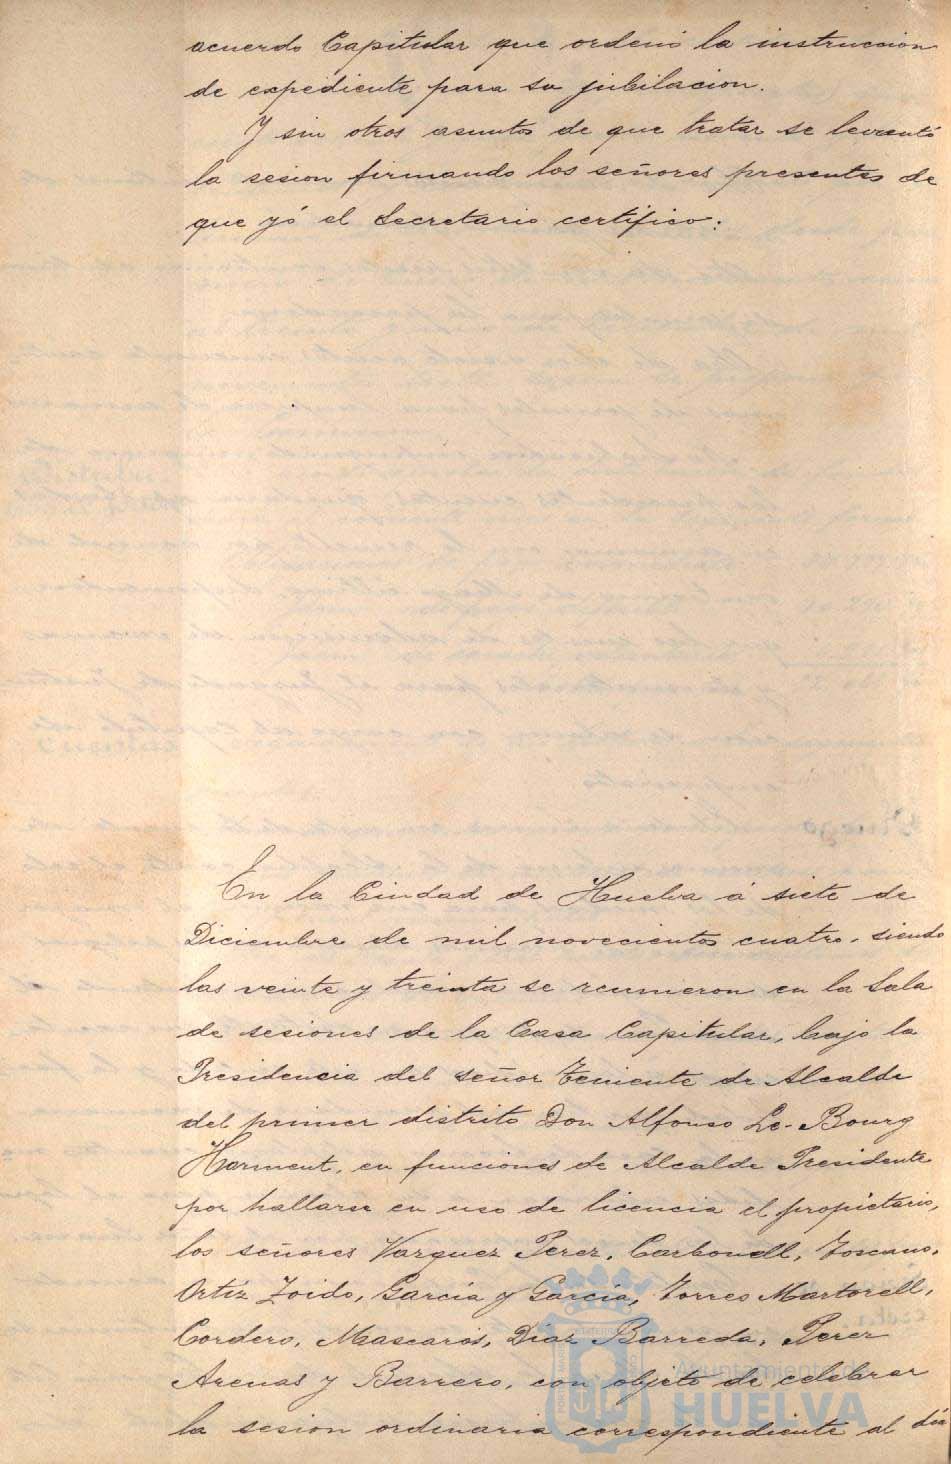 acuerdo Capitular que ordenó la instruccion
de expediente para su jubilacion.
Y sin otros asuntos de que tratar se levantó
la sesion firmando los señores presentes de
que yó el Secretario certifico:
En la Ciudad de Huelva á siete de
Diciembre de mil novecientos cuatro, siendo
las veinte y treinta se reunieron en la Sala
de sesiones de la Casa Capitular, bajo la
Presidencia del señor Teniente de Alcalde
del primer distrito Don Alfonso Le-Bourg
Harment, en funciones de Alcalde Presidente
por hallarse en uso de licencia el propietario,
los señores Vazquez Perez, Carbonell, Toscano,
Ortiz Zoido, Garcia y Garcia, Torres Martorell,
Cordero, Mascarós, Diaz Barreda, Perez
Arenas y Barrero, con objeto de celebrar
la sesion ordinaria correspondiente al dia
Ayuntamiento de
HUELVA